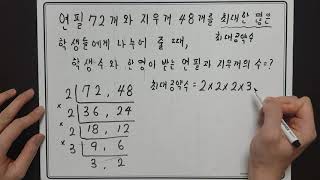 연필 72개와 지우개 48개를 최대한 많은
최대공약수
학생들에게 나누어 줄 때,
학생 수와 한명이 받는 연필과 지우개의 수=?
2 72, 48
× 2 36, 24
× 2 18, 12
× 3 9, 6
3, 2
최대공약수 = 2×2×2×3